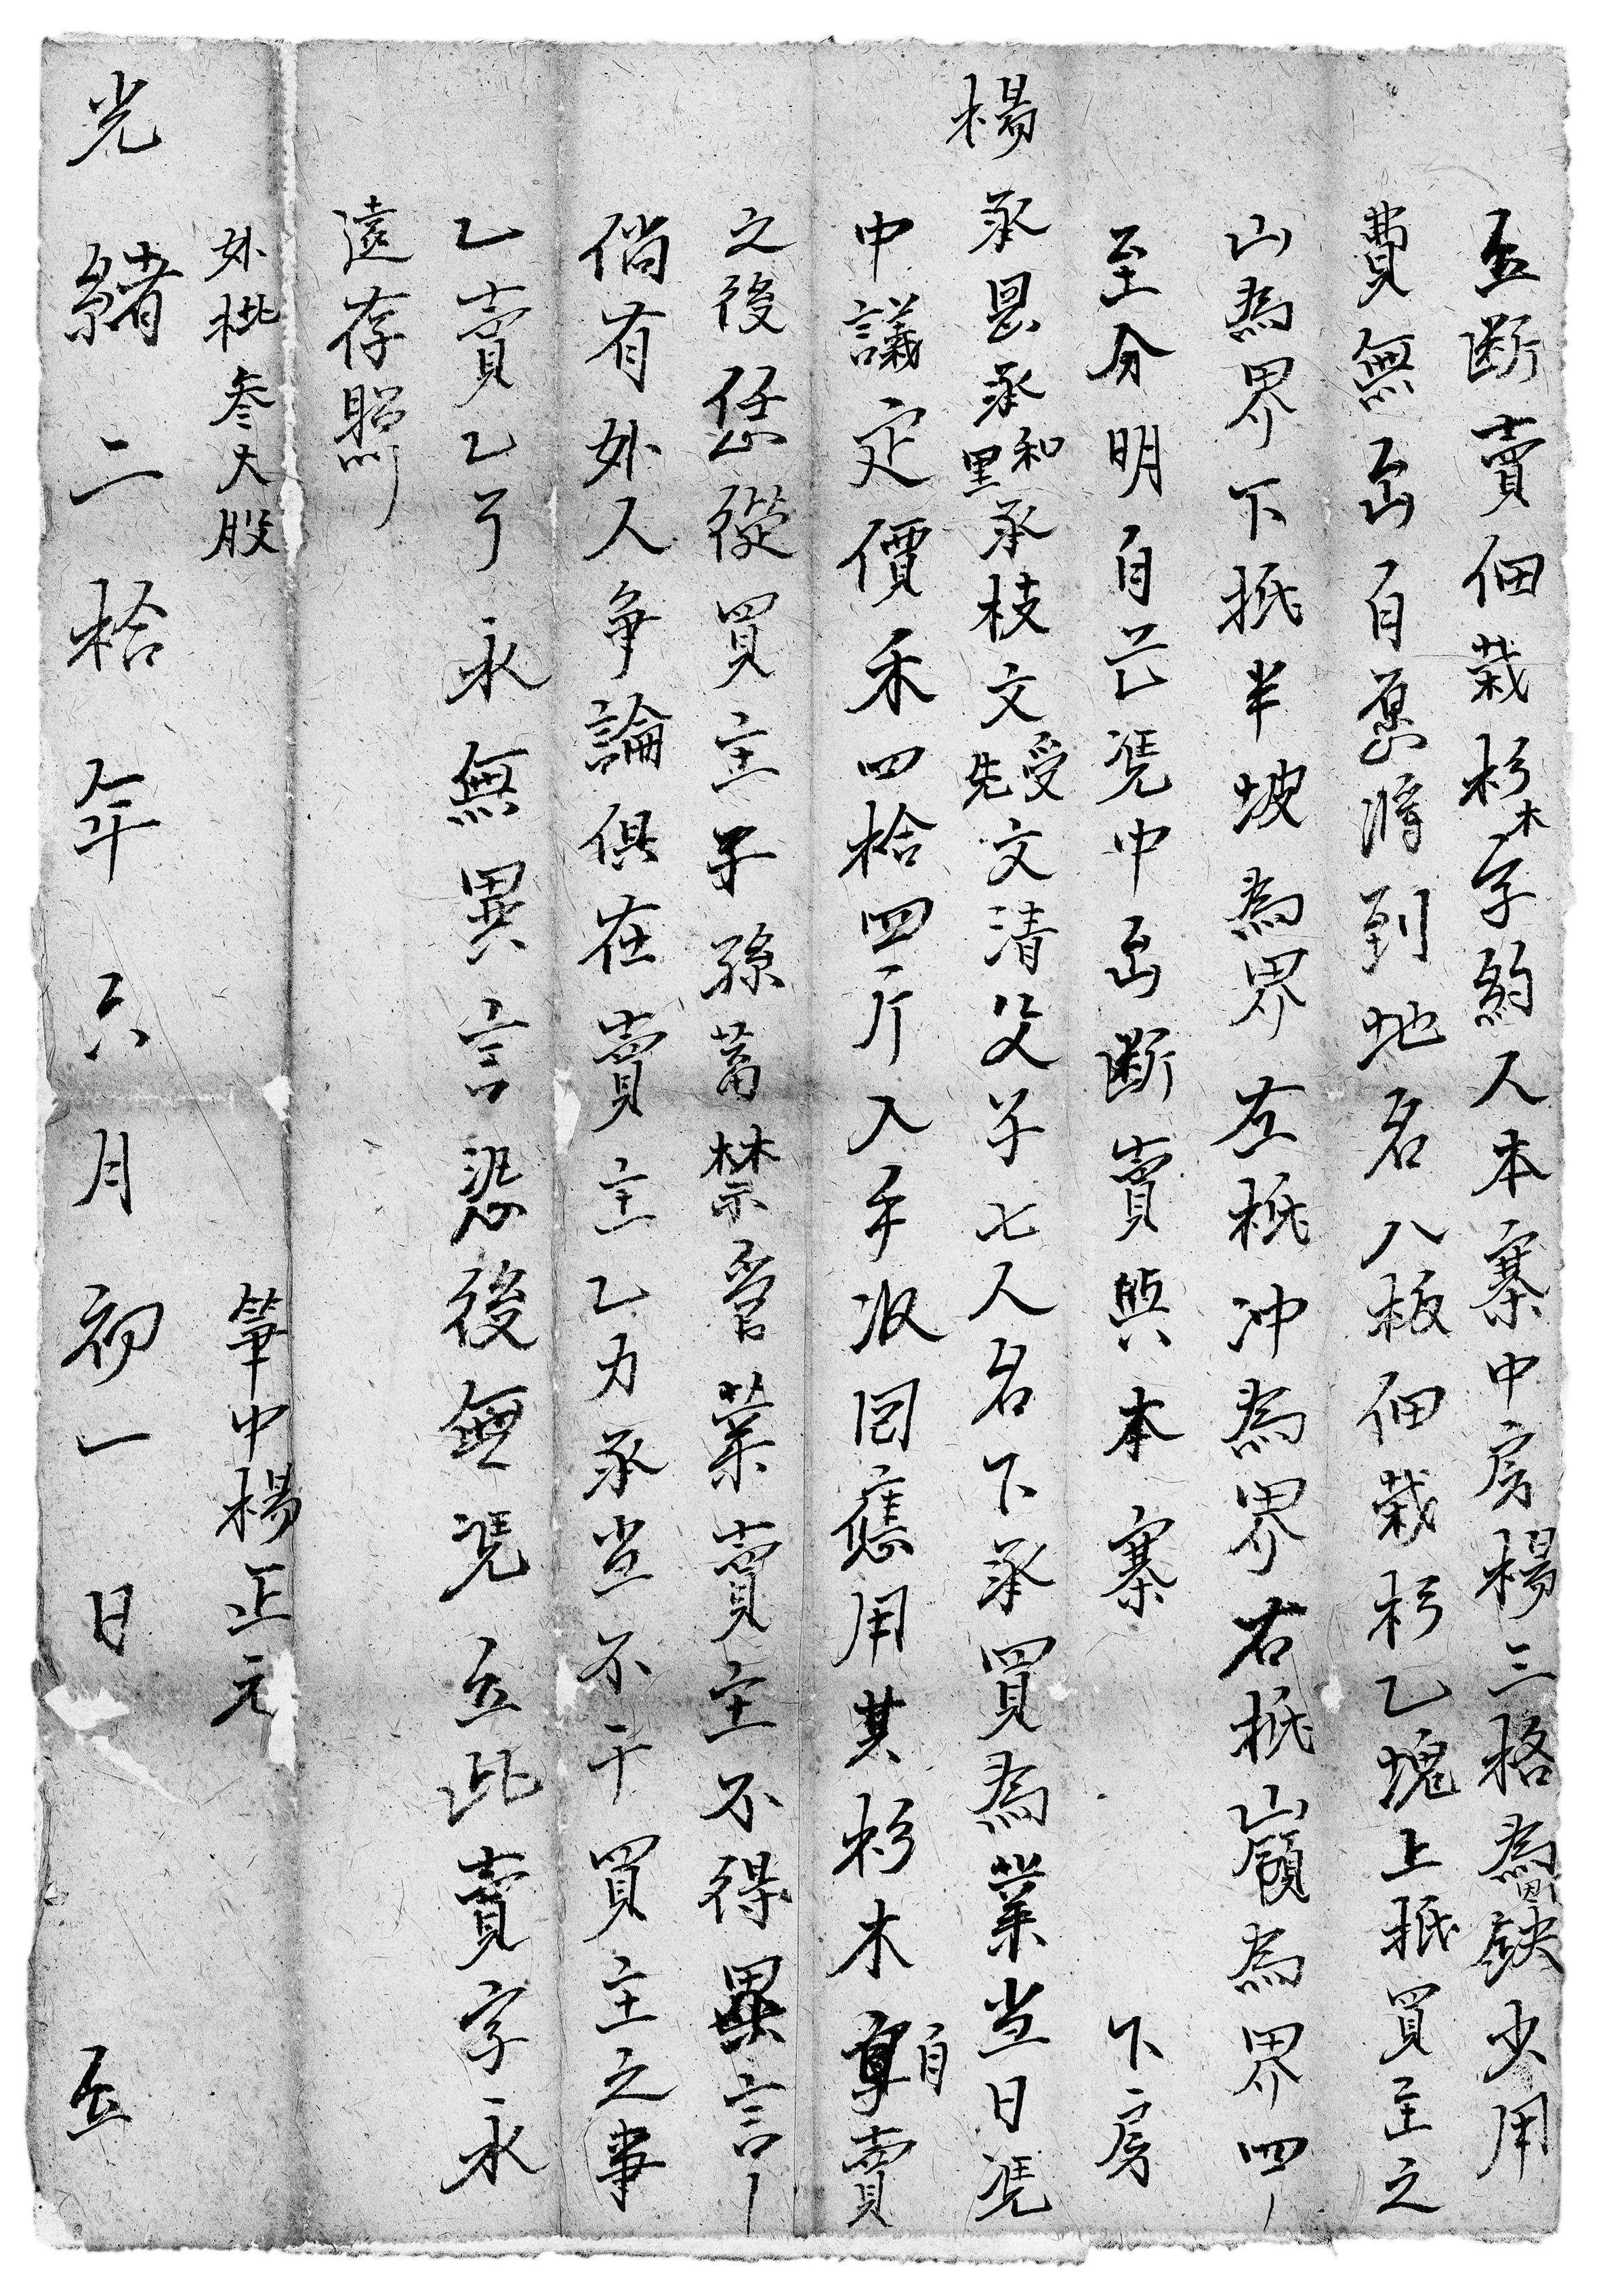 立断賣佃栽杉木字約人本寨中房楊三格為因缺少用
費無出自愿將到地名八板佃栽杉乙塊上抵買主之
山為界下抵半坡為界左抵冲為界右抵山嶺為界四
至分明自己凭中出断賣與本寨下房
楊承恩承和里承枝文受先文清父子七人名下承買為業当日凭
中議定價禾四拾四斤入手收回應用其杉木自賣
之後恁從買主子孫蓄禁管業賣主不得異言
倘有外人争論俱在賣主乙力承当不干買主之事
乙賣乙了永無異言恐後無凭立此賣字永
遠存照
外批叁大股
筆中楊正元
光緒二拾年六月初一日立